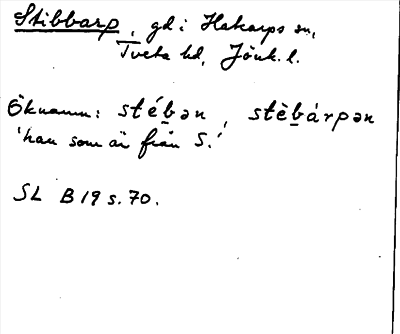 Stibbarp, gd i Hakarps sn,
Tveta hd, Jönk. l.
Öknamn: stéb̲ən, stèb̲árpən
'han som är från S.'
SL B 19 s. 70.